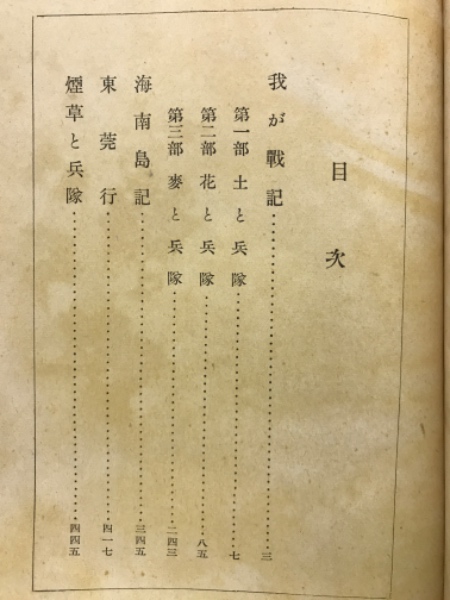 目次
我が戰記……三
第一部 土と兵隊……七
第二部 花と兵隊……八五
第三部 麥と兵隊……二四三
海南島記……三四五
東莞行……四一七
煙草と兵隊……四四五